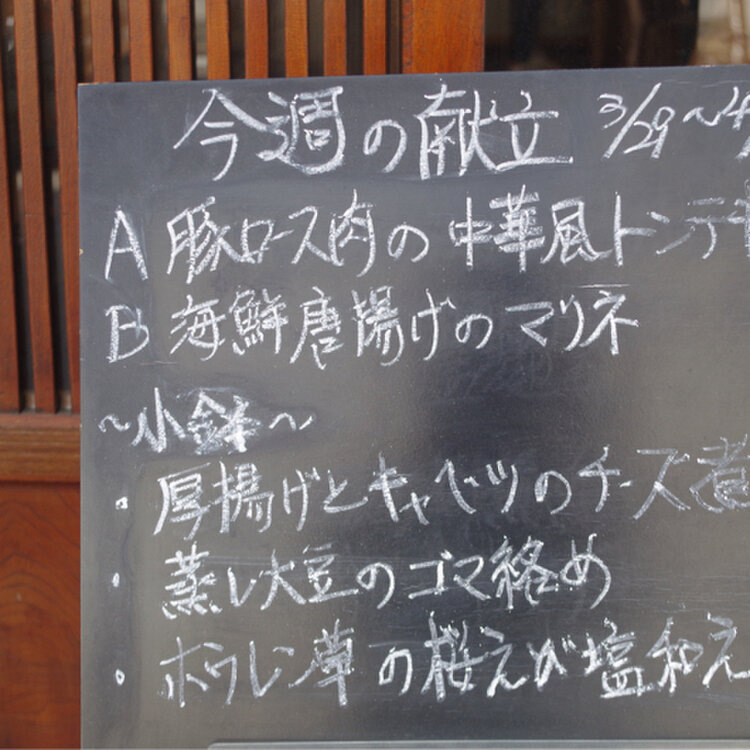 今週の献立 3/29~4/
A 豚ロース肉の中華風トンテ
B 海鮮唐揚げのマリネ
~小鉢~
・厚揚げとキャベツのチーズ煮
・蒸し大豆のゴマ絡め
・ホウレン草の桜えび塩和え